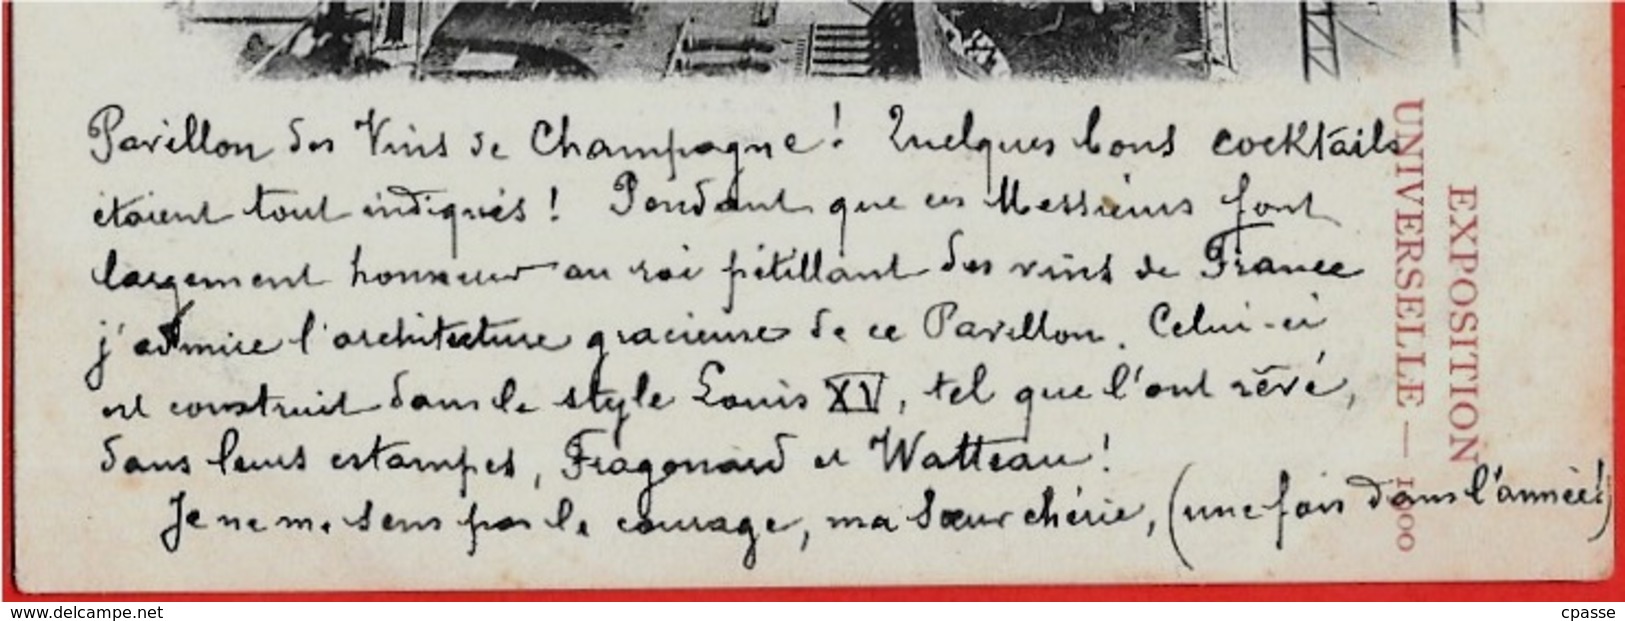 Pavillon des Vins de Champagne! Quelques bons cocktails
étaient tout indiqués! Pendant que ces Messieurs font
largement honneur au roi pétillant des vins de France
j'admire l'architecture gracieuse de ce Pavillon. Celui-ci
est construit dans le style Louis XV, tel que l'ont rêvé,
dans leurs estampes, Fragonard et Watteau!
Je ne me sens pas le courage, ma Sœur chérie, (une fois dans l'année!)
EXPOSITION
UNIVERSELLE — 1900
www.delcampe.net
cpasse